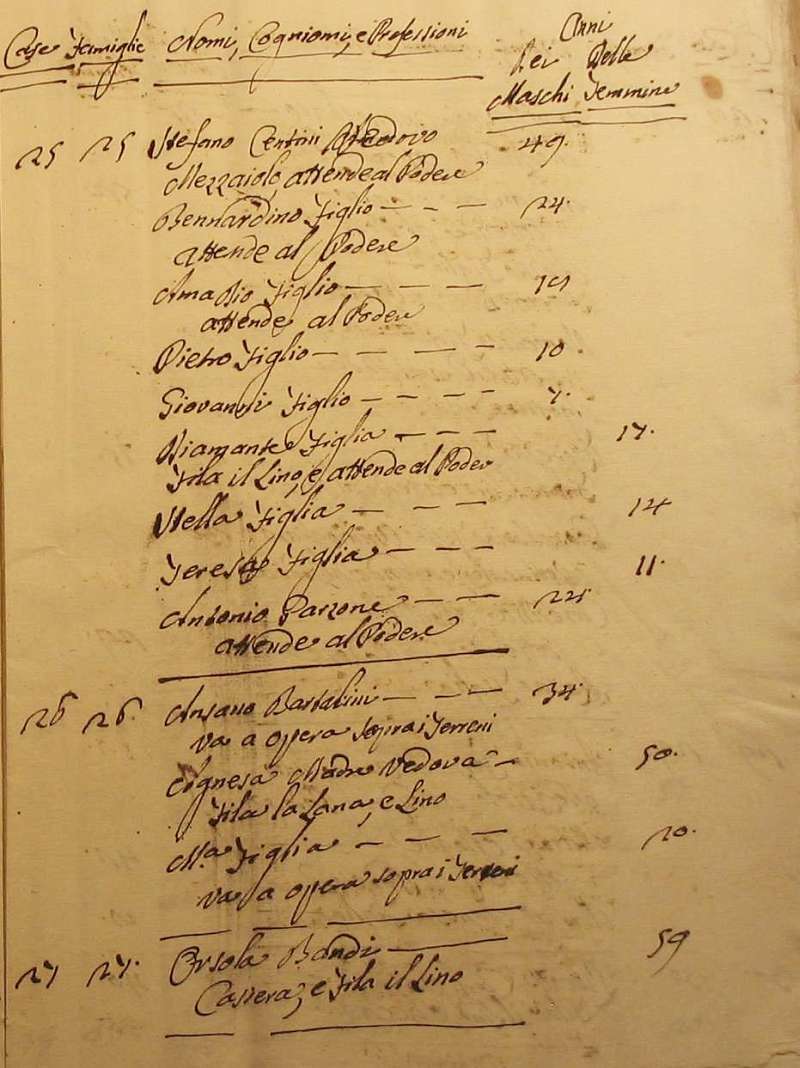 Anni
Case Famiglie Nomi, Cogniomi, e Professioni Dei Delle
Maschi Femmine
25 25 Stefano Centini Vedovo 49.
Mezzaiolo, attende al Podere
Bennardino Figlio — — — 24.
attende al Podere
Amadio Figlio — — — —
attende al Podere
Pietro Figlio — — — — 10
Giovanni Figlio — — — — 7.
Diamante Figlia — — — 17.
Fila il Lino, e attende al Poder
Stella Figlia — — — 14
Teresa Figlia — — — 11.
Antonio Garzone — — —
attende al Podere
26 26 Ansano Bartalini — — — 34.
va a opera sopra i Terreni
Agnesa Madre Vedova — 50.
Fila la Lana, e Lino
Ma. Figlia — — — 20.
va a opera sopra i Terreni
27 27. Orsola Bandi — 59
Casiera, e Fila il Lino